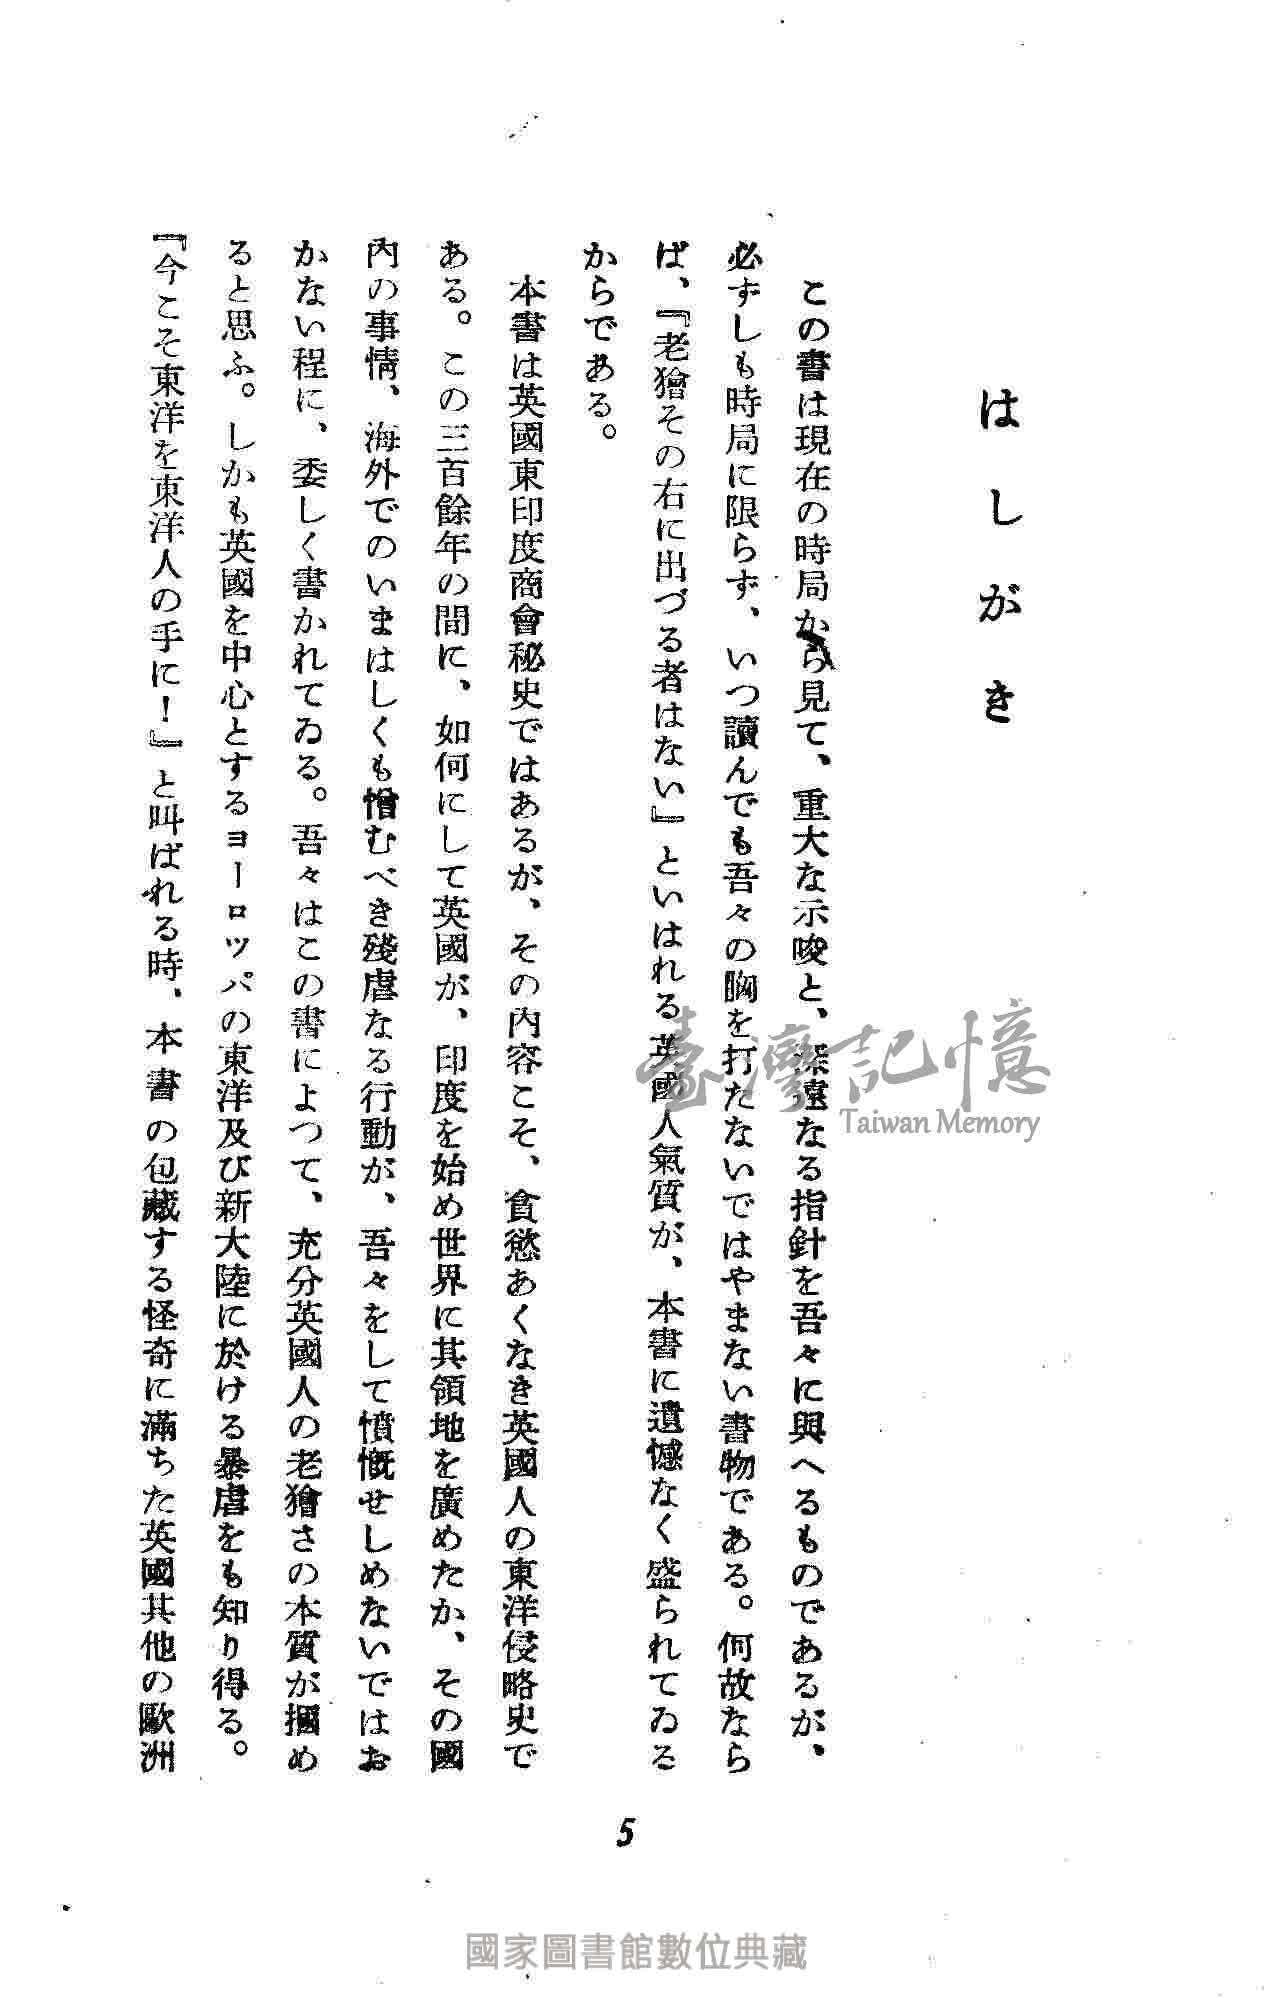 はしがき
この書は現在の時局から見て、重大な示唆と、深遠なる指針を吾々に與へるものであるが、
必ずしも時局に限らず、いつ讀んでも吾々の胸を打たないではやまない書物である。何故なら
ば、『老獪その右に出づる者はない』といはれる英國人氣質が、本書に遺憾なく盛られてゐる
からである。
本書は英國東印度商會秘史ではあるが、その內容こそ、貪慾あくなき英國人の東洋侵略史で
ある。この三百餘年の間に、如何にして英國が、印度を始め世界に其領地を廣めたか、その國
內の事情、海外でのいまはしくも憎むべき殘虐なる行動が、吾々をして憤慨せしめないではお
かない程に、委しく書かれてゐる。吾々はこの書によつて、充分英國人の老獪さの本質が摑め
ると思ふ。しかも英國を中心とするヨーロッパの東洋及び新大陸に於ける暴虐をも知り得る。
『今こそ東洋を東洋人の手に！』と叫ばれる時、本書の包藏する怪奇に滿ちた英國其他の歐洲
5
臺灣記憶
Taiwan Memory
國家圖書館數位典藏